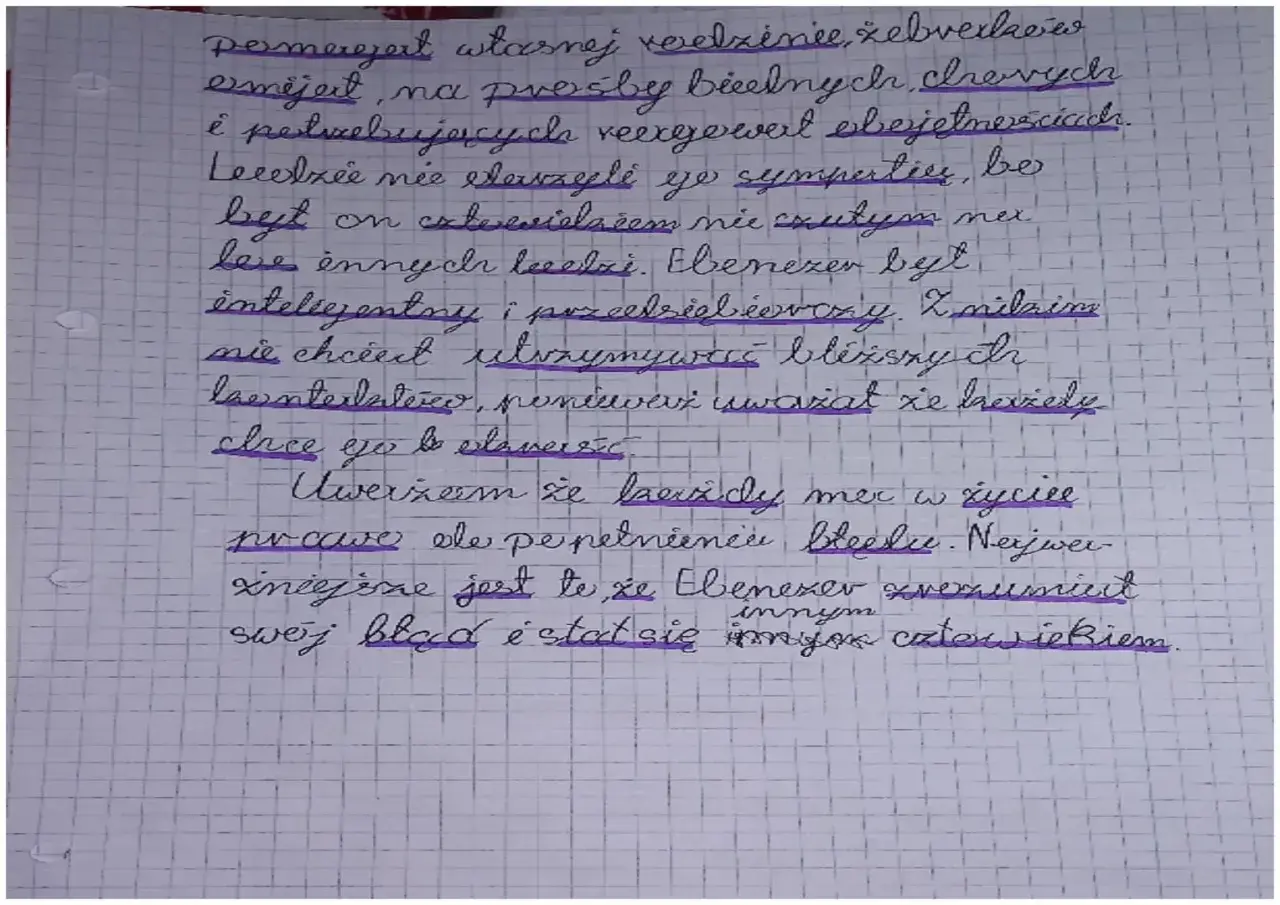 pomagał własnej rodzinie, żebraków
omijał, na prośby biednych, chorych
i potrzebujących reagował obojętnościach.
Ludzie nie darzyli go sympatią, bo
był on człowiekiem nie czułym na
los innych ludzi. Ebenezer był
inteligentny i przedsiębiorczy. Z nikim
nie chciał utrzymywać bliższych
kontaktów, ponieważ uważał że każdy
chce go okraść.
Uważam że każdy ma w życiu
prawo do popełnienia błędu. Najwa-
żniejsze jest to, że Ebenezer zrozumiał
swój błąd i stał się innym człowiekiem.